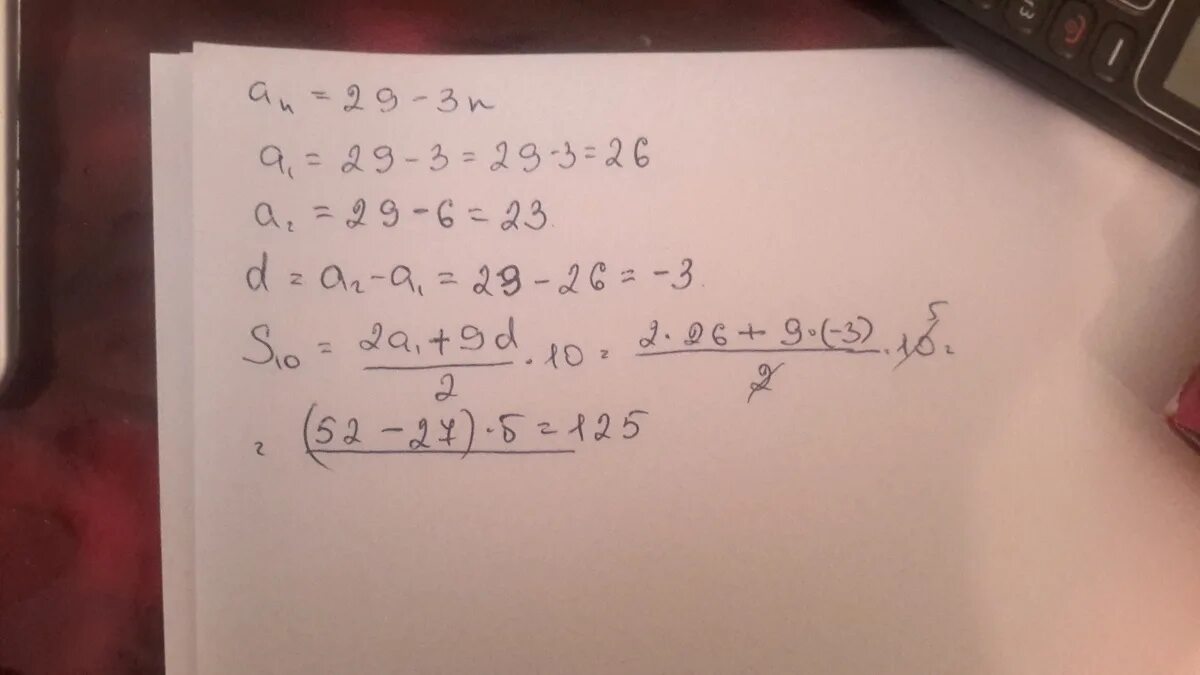 aₙ = 29 - 3n
a₁ = 29 - 3 = 29 - 3 = 26
a₂ = 29 - 6 = 23
d = a₂ - a₁ = 29 - 26 = -3
S₁₀ = (2a₁ + 9d)/2 · 10 = (2 · 26 + 9 · (-3))/2 · 10 5 =
= (52 - 27) · 5 = 125